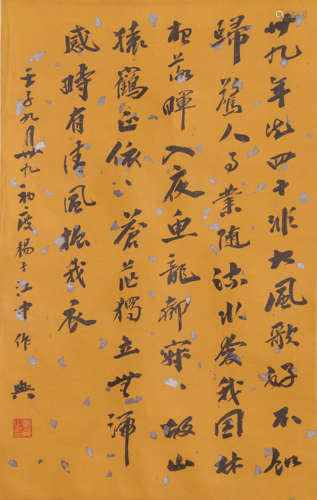 卅九年知四十非大風歌好不如
歸驚人事業隨流水愛我園林
想落暉入夜魚龍都寂々故山
猿鶴正依々蒼茫獨立無端
感時有清風振我衣
壬子九月卅九初度揚子江中作 興